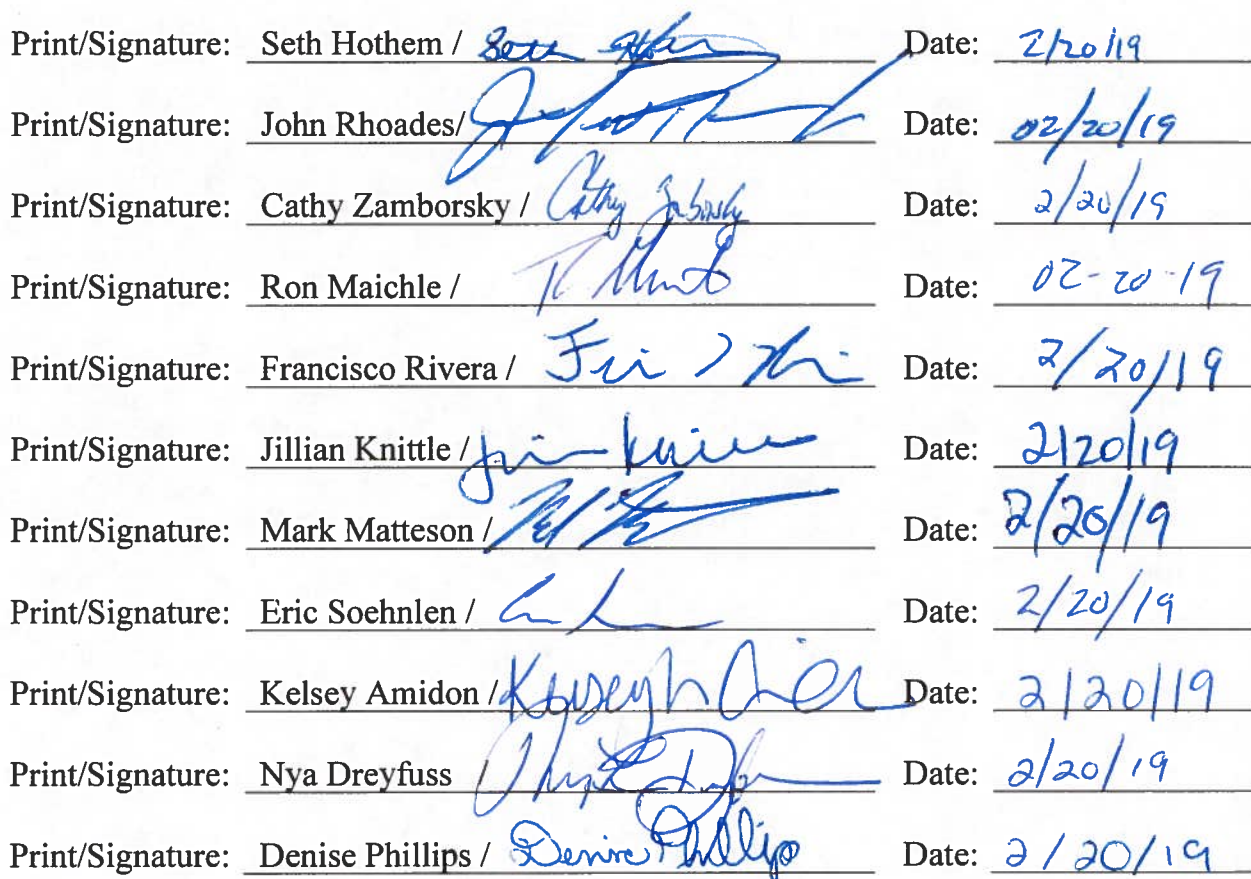 Print/Signature: Seth Hothem / Seth Date: 2/20/19
Print/Signature: John Rhoades/ Date: 02/20/19
Print/Signature: Cathy Zamborsky / Cathy Date: 2/20/19
Print/Signature: Ron Maichle / Date: 02-20-19
Print/Signature: Francisco Rivera / Date: 2/20/19
Print/Signature: Jillian Knittle / Date: 2/20/19
Print/Signature: Mark Matteson / Date: 2/20/19
Print/Signature: Eric Soehnlen / Date: 2/20/19
Print/Signature: Kelsey Amidon / Kelsey Date: 2/20/19
Print/Signature: Nya Dreyfuss / Date: 2/20/19
Print/Signature: Denise Phillips / Denise Phillips Date: 2/20/19